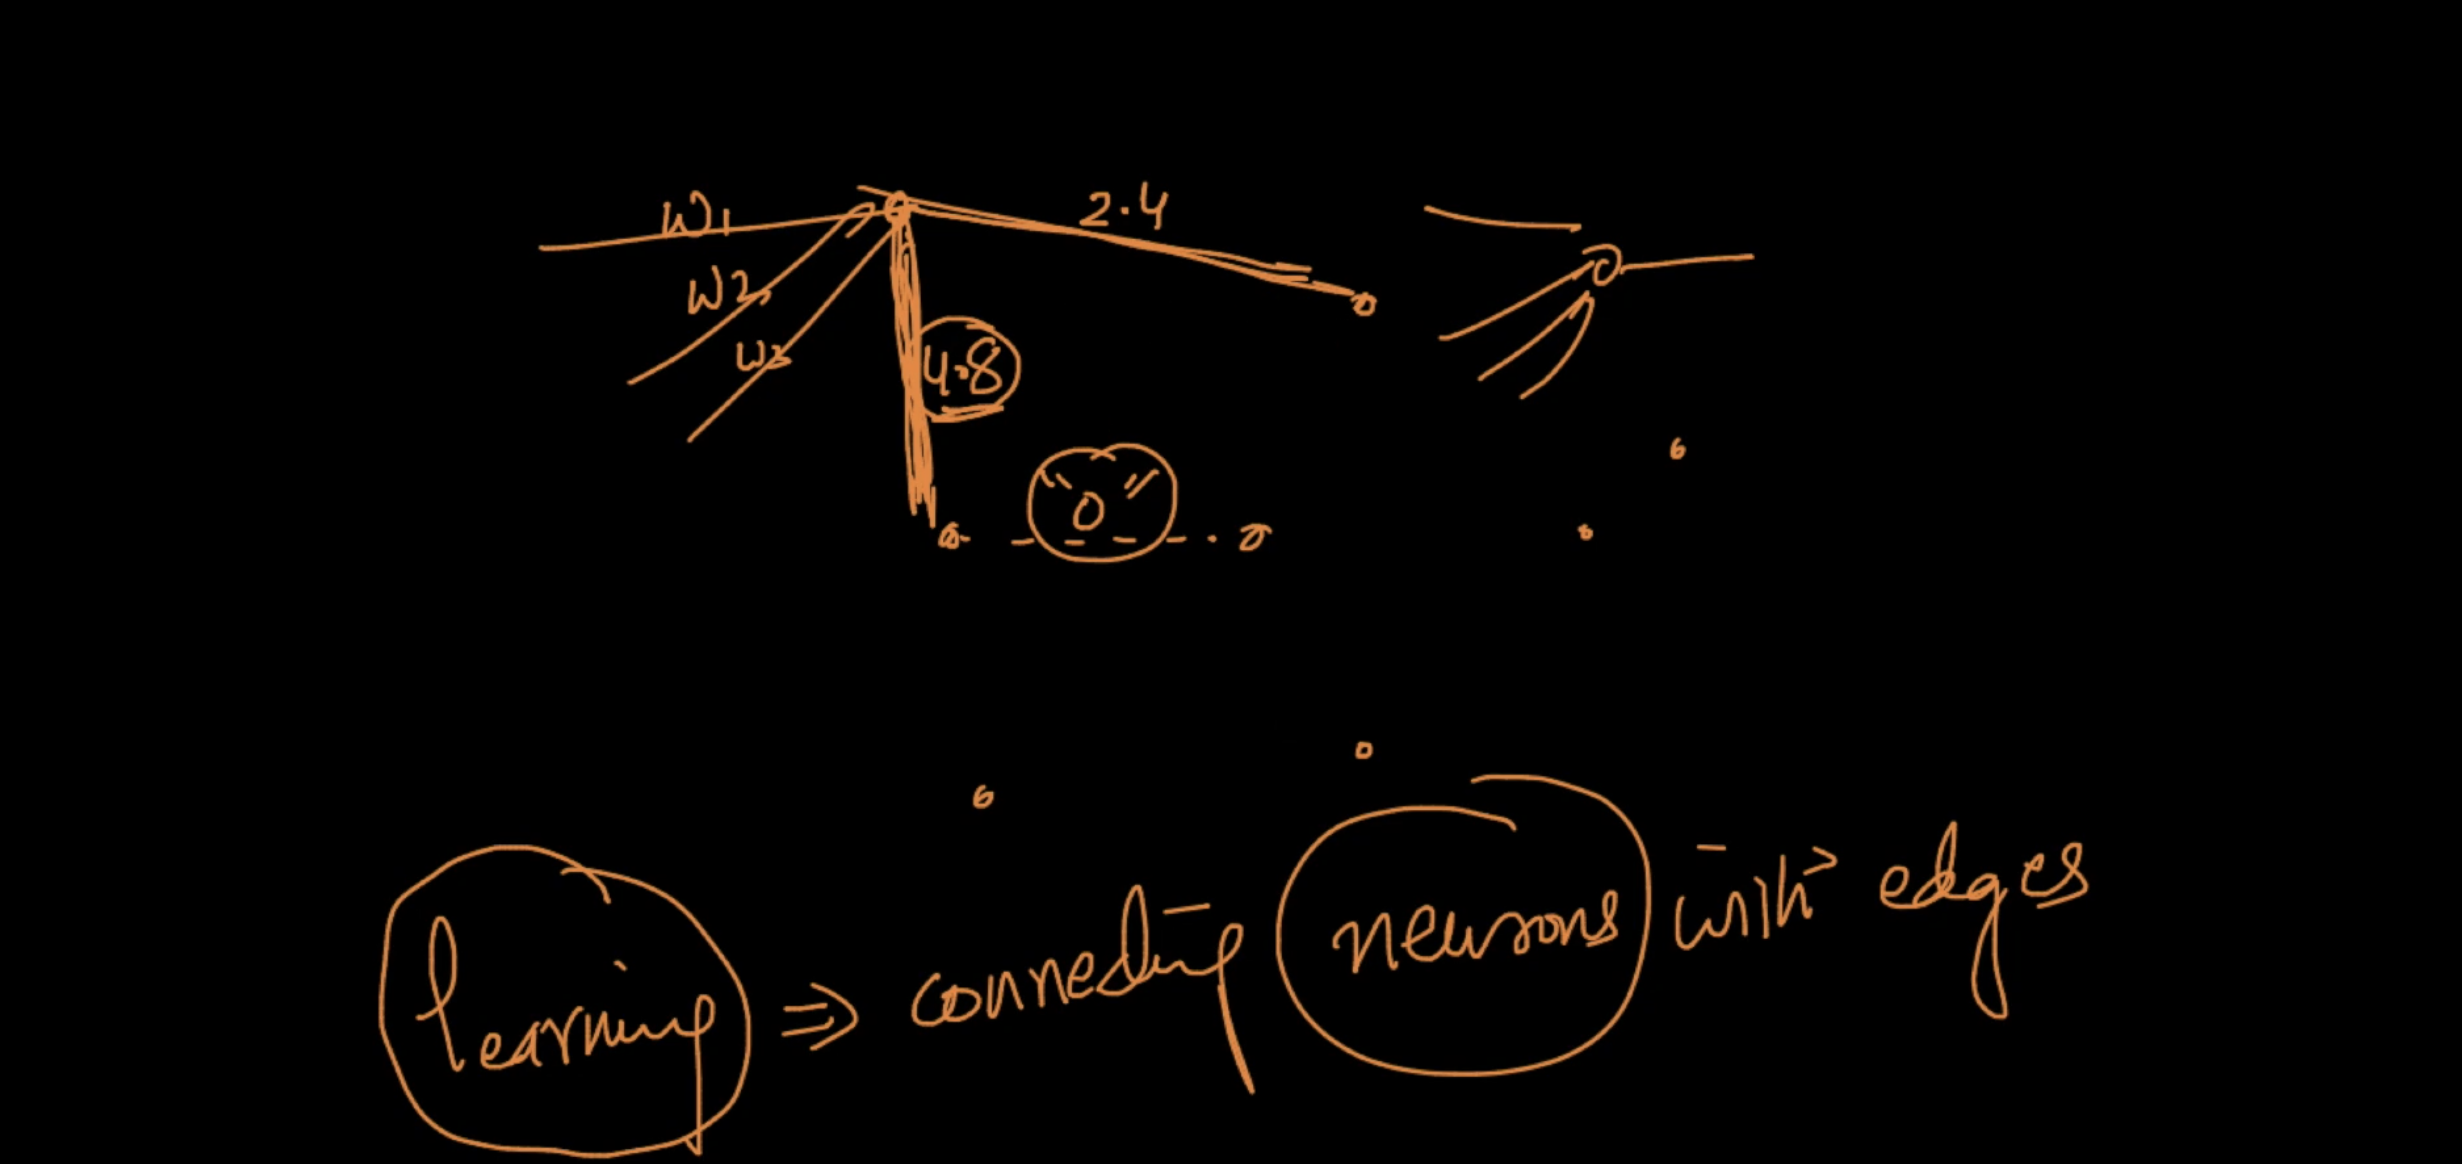 W1
2.4
W2
W3
4.8
"0"
learning ⇒ connecting neurons with edges